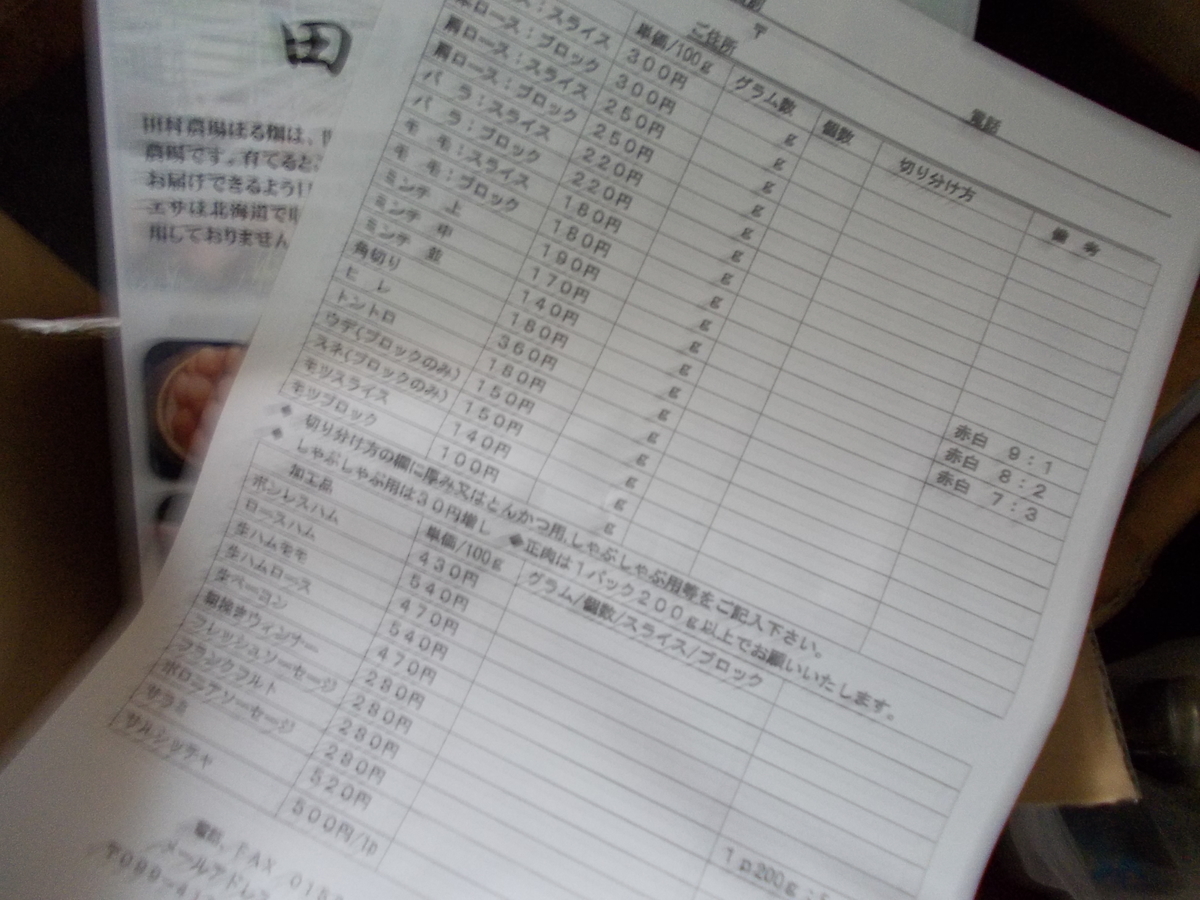 田
田村農場ぼる楜は、
農場です。育てると
お届けできるよう
エサは北海道で
用しておりません
〒
ご住所
電話
単価/100g グラム数 個数 切り分け方 備考
：スライス 300円 g
ロース：ブロック 300円 g
肩ロース：スライス 250円 g
肩ロース：ブロック 250円 g
バ ラ：スライス 220円 g
バ ラ：ブロック 220円 g
モ モ：スライス 180円 g
モ モ：ブロック 180円 g
ミンチ 上 190円 g 赤白 9：1
ミンチ 中 170円 g 赤白 8：2
ミンチ 並 140円 g 赤白 7：3
角切り 180円 g
ヒ レ 360円 g
トントロ 180円 g
ウデ(ブロックのみ) 150円 g
スネ(ブロックのみ) 150円 g
モツスライス 140円 g
モツブロック 100円 g
◆ 切り分け方の欄に厚み又はとんかつ用,しゃぶしゃぶ用等をご記入下さい。
◆ しゃぶしゃぶ用は30円増し ◆正肉は1パック200g以上でお願いいたします。
加工品 単価/100g グラム/個数/スライス/ブロック
ボンレスハム 430円
ロースハム 540円
生ハムモモ 470円
生ハムロース 540円
生ベーコン 470円
粗挽きウィンナー 280円
フレッシュソーセージ 280円
フランクフルト 280円
ボロニアソーセージ 280円
サラミ 520円
サルシッチャ 500円/1p 1p200g
電話、FAX 015
メールアドレス
〒089-41